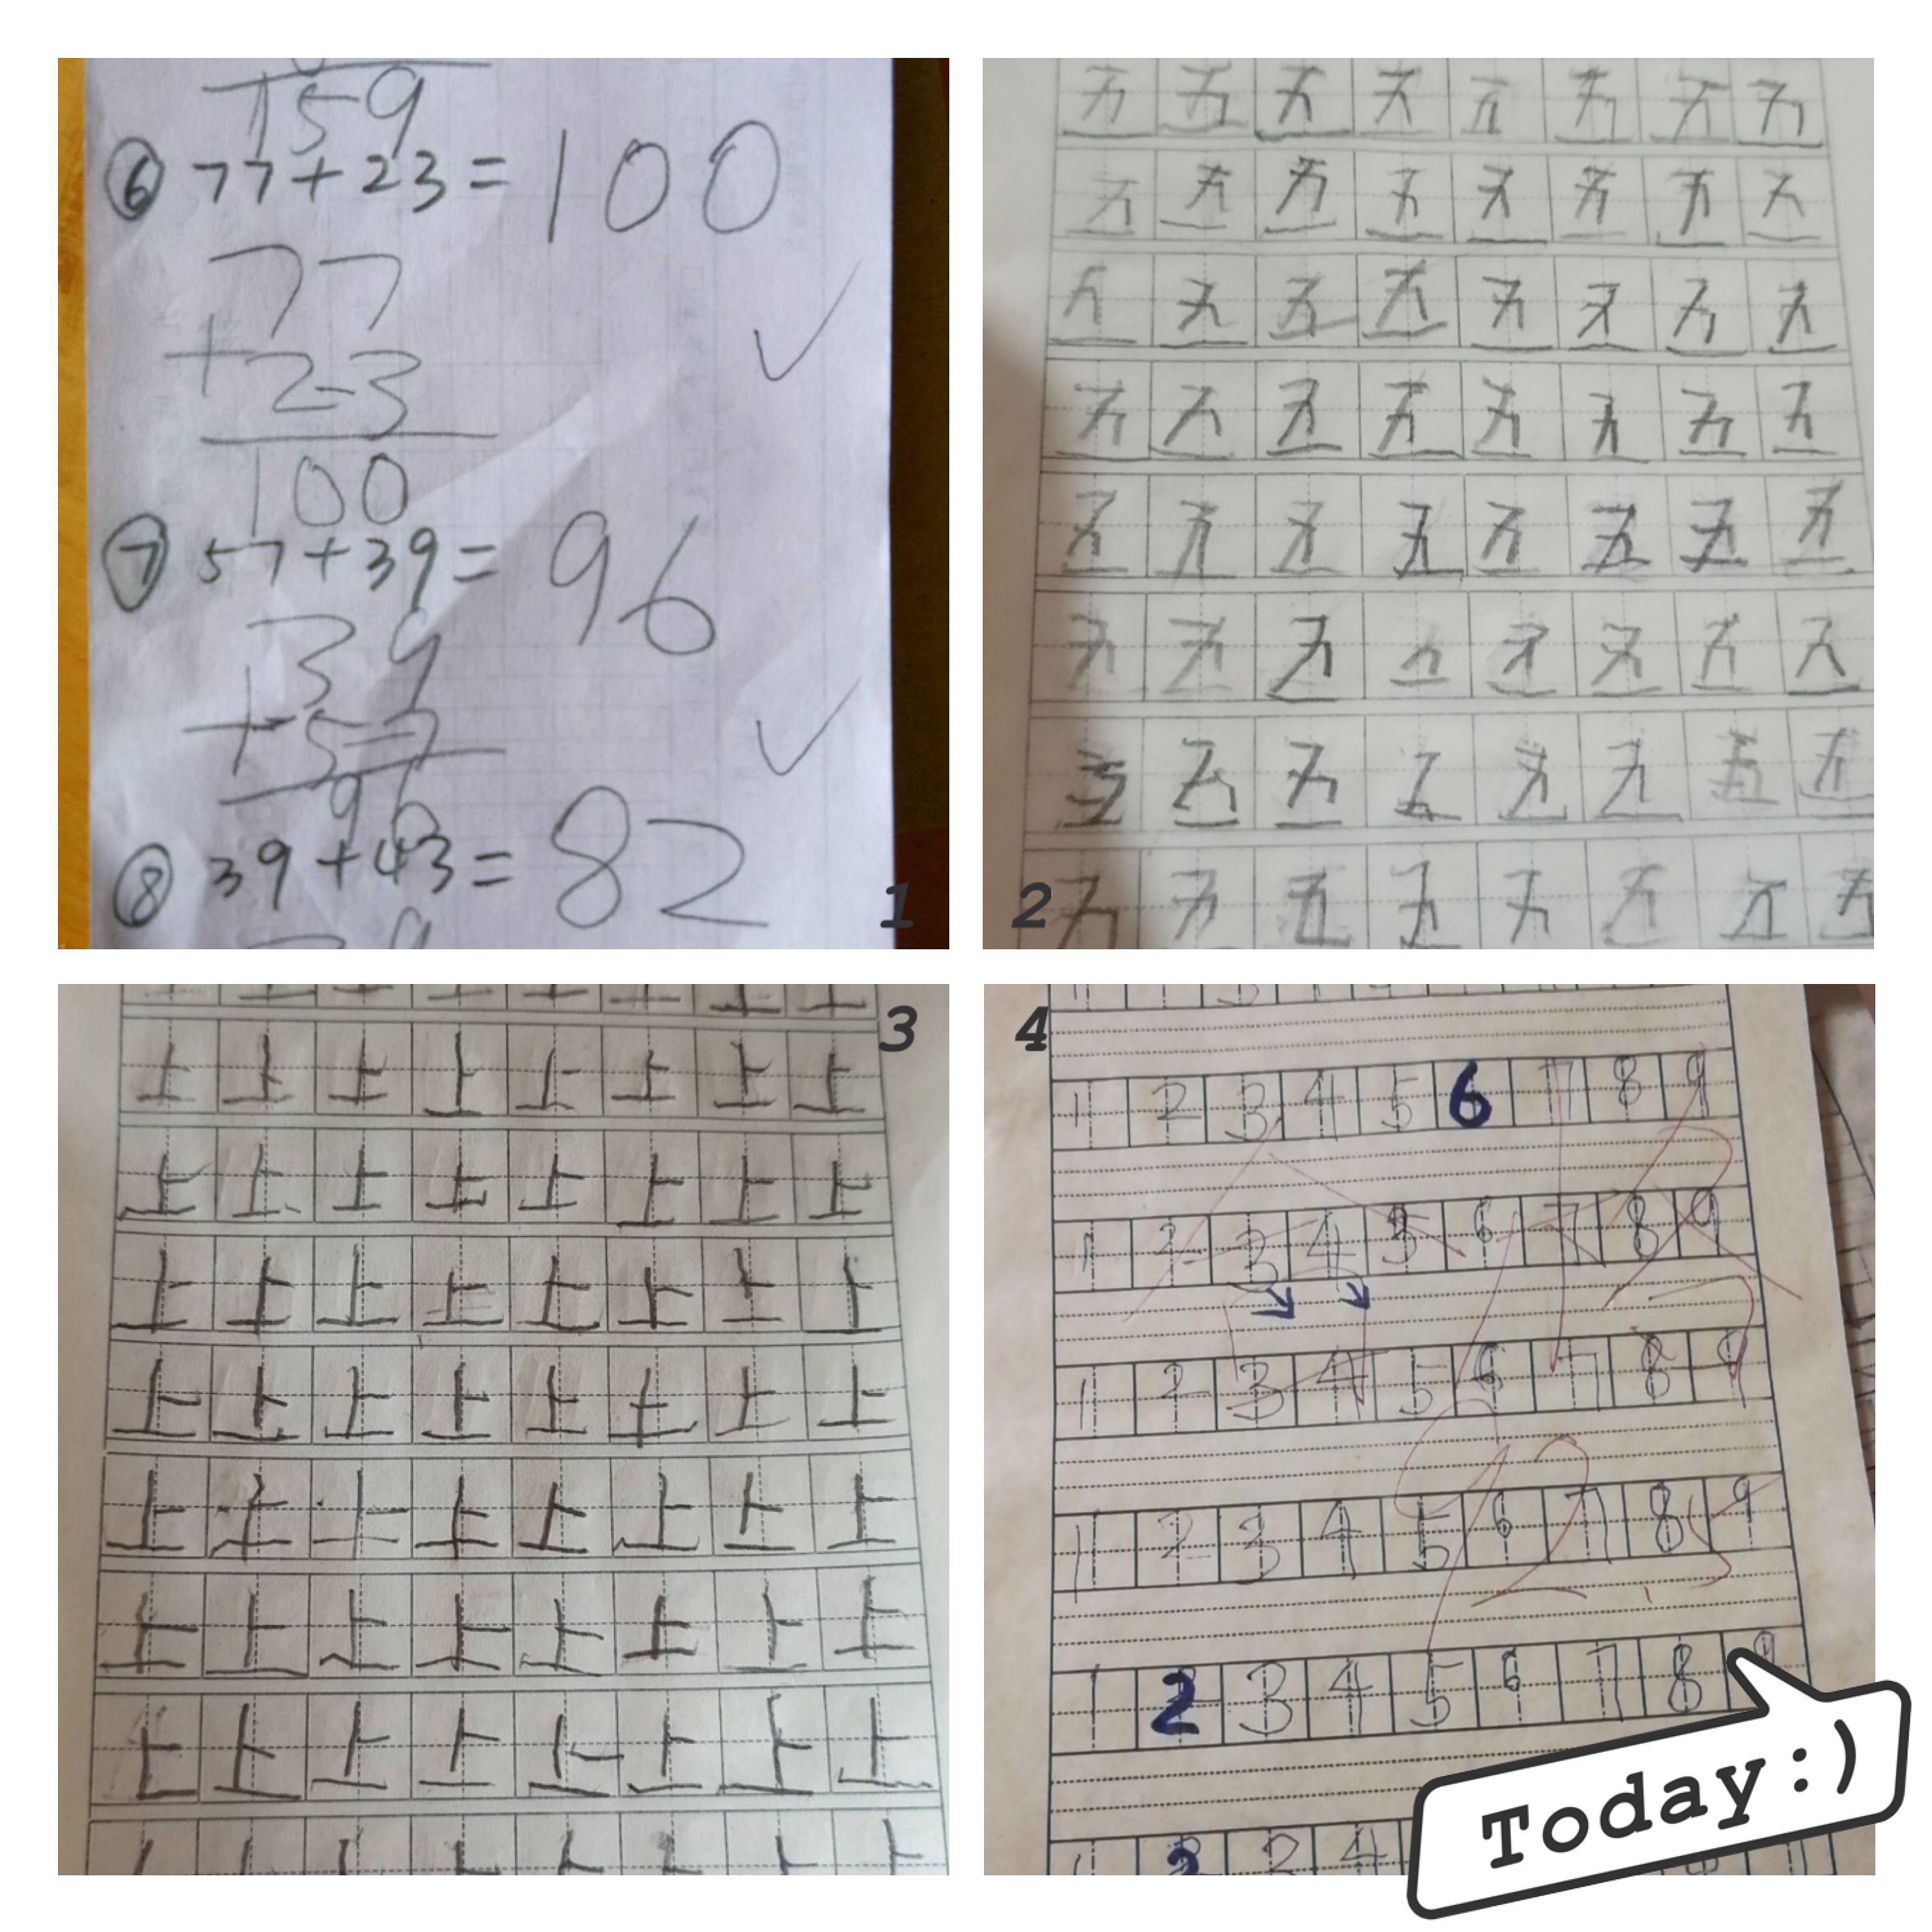 159
⑥ 77+23=100
77
+23
100
⑦ 57+39=96
39
+57
96
⑧ 39+43=82
1
五 五 五 五 五 五 五 五
五 五 五 五 五 五 五 五
五 五 五 五 五 五 五 五
五 五 五 五 五 五 五 五
五 五 五 五 五 五 五 五
五 五 五 五 五 五 五 五
五 五 五 五 五 五 五 五
五 五 五 五 五 五 五 五
2
3
上 上 上 上 上 上 上 上
上 上 上 上 上 上 上 上
上 上 上 上 上 上 上 上
上 上 上 上 上 上 上 上
上 上 上 上 上 上 上 上
上 上 上 上 上 上 上 上
上 上 上 上 上 上 上 上
4
1 2 3 4 5 6 7 8 9
1 2 3 4 5 6 7 8 9
1 2 3 4 5 6 7 8 9
1 2 3 4 5 6 7 8 9
1 2 3 4 5 6 7 8 9
Today:)